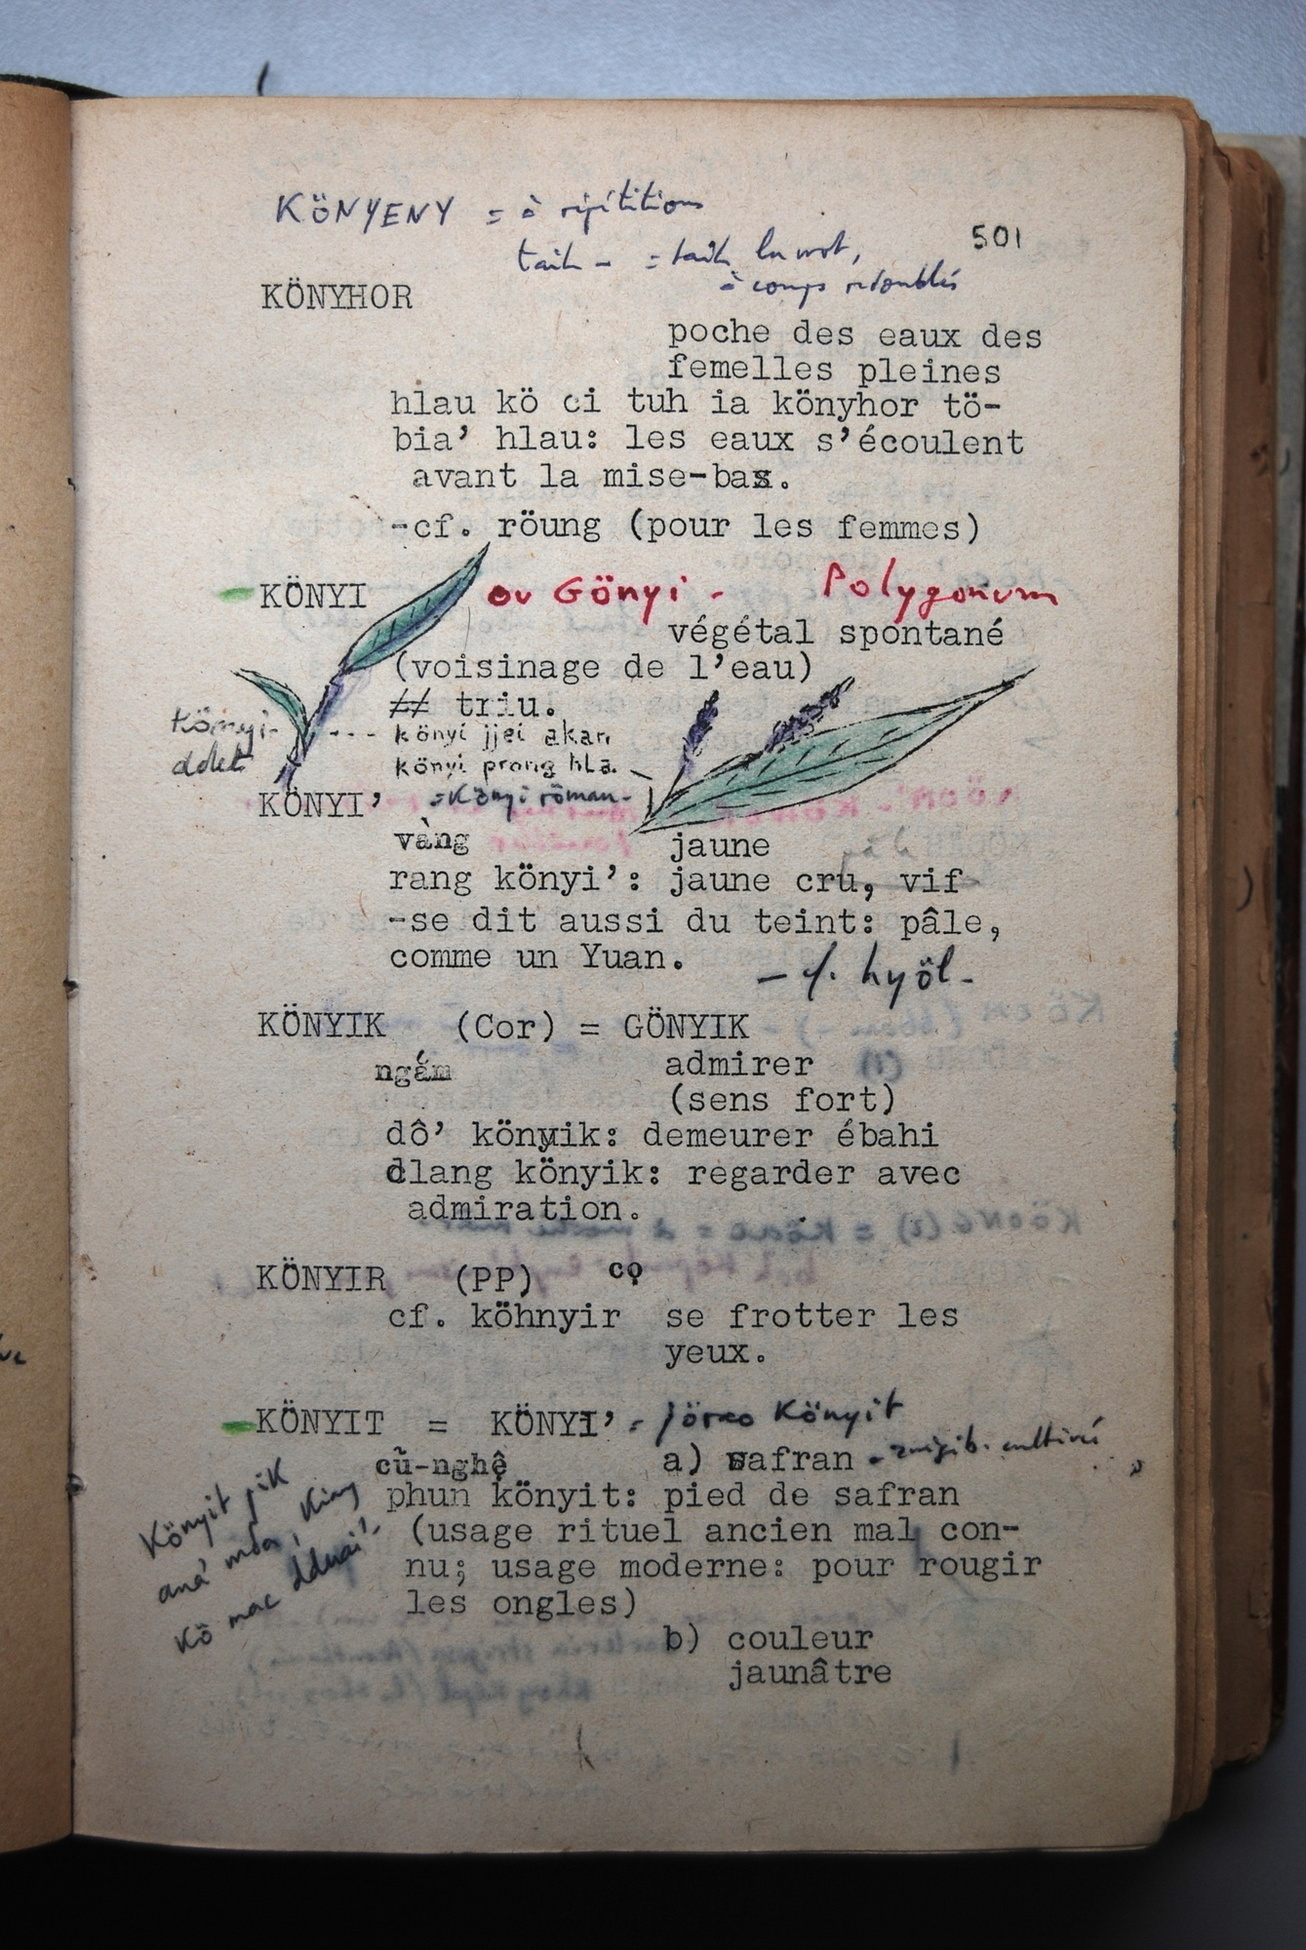 KÖNYENY = à répétitions
taih - = taih lu wot,
à coups redoublés
501
KÖNYHOR
poche des eaux des
femelles pleines
hlau kö ci tuh ia könyhor tö-
bia' hlau: les eaux s'écoulent
avant la mise-bas.
-cf. röung (pour les femmes)
KÖNYI ou Gönyi - Polygonum
végétal spontané
(voisinage de l'eau)
≠ triu.
Könyi- ddet
könyi jjei akan
könyi prong hla
KÖNYI' =Könyi röman-
vàng jaune
rang könyi': jaune cru, vif
-se dit aussi du teint: pâle,
comme un Yuan. - cf. hyöl-
KÖNYIK (Cor) = GÖNYIK
ngắm admirer
(sens fort)
dô' könyik: demeurer ébahi
dlang könyik: regarder avec
admiration.
KÖNYIR (PP) cọ
cf. köhnyir se frotter les
yeux.
KÖNYIT = KÖNYI' = Jörao Könyit
cũ-nghệ a) safran - zingib. cultivé
phun könyit: pied de safran
(usage rituel ancien mal con-
nu; usage moderne: pour rougir
les ongles)
b) couleur
jaunâtre
Könyit jik
ana' möa, King
Kö mac dduai'-